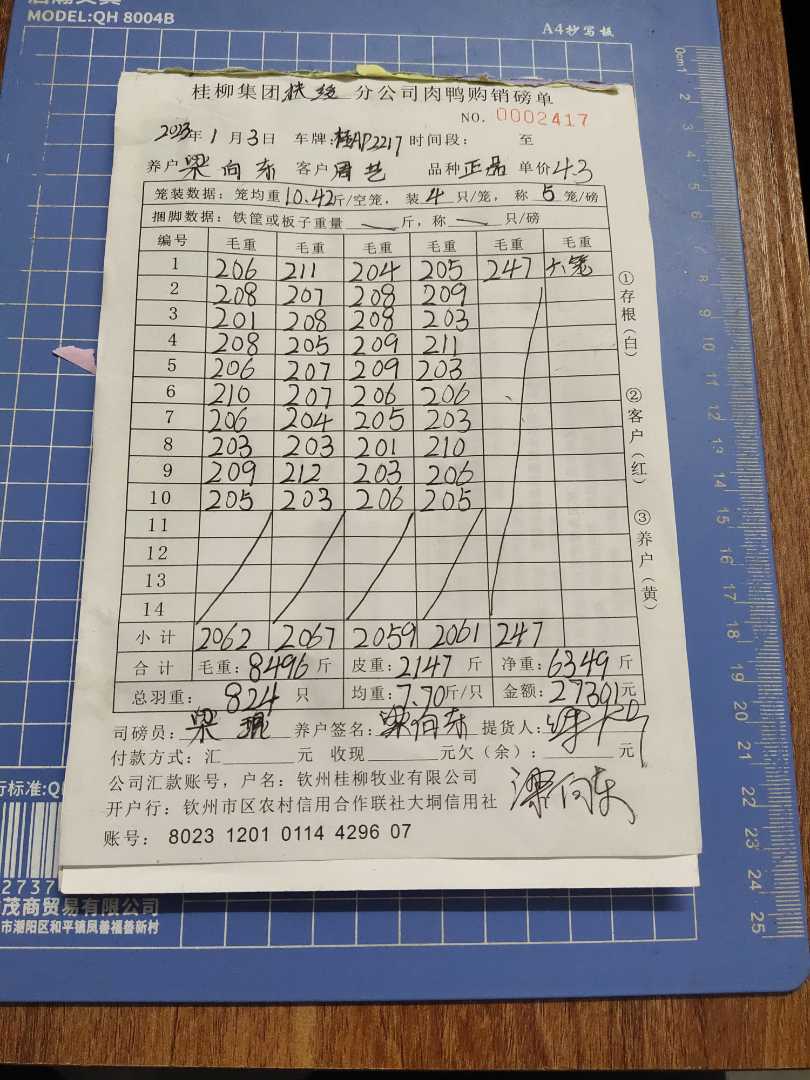 MODEL:QH 8004B
A4抄写板
桂柳集团扶绥分公司肉鸭购销磅单
NO. 0002417
2023年1月3日 车牌:桂AP2217 时间段: 至
养户梁向东 客户周艺 品种正品 单价4.3
笼装数据:笼均重10.42斤/空笼,装4只/笼,称5笼/磅
捆脚数据:铁筐或板子重量 斤,称 只/磅
编号 毛重 毛重 毛重 毛重 毛重 毛重
1 206 211 204 205 247 六笼
2 208 207 208 209
3 201 208 208 203
4 208 205 209 211
5 206 207 209 203
6 210 207 206 206
7 206 204 205 203
8 203 203 201 210
9 209 212 203 206
10 205 203 206 205
11
12
13
14
小计 2062 2067 2059 2061 247
合计 毛重:8496斤 皮重:2147斤 净重:6349斤
总羽重:824只 均重:7.70斤/只 金额:27301元
司磅员:梁 养户签名:梁向东 提货人:
付款方式:汇 元 收现 元欠(余): 元
公司汇款账号,户名:钦州桂柳牧业有限公司
开户行:钦州市区农村信用合作联社大垌信用社 梁向东
账号: 8023 1201 0114 4296 07
①存根(白)
②客户(红)
③养户(黄)
0cm1 2 3 4 5 6 7 8 9 10 11 12 13 14 15 16 17 18 19 20 21 22 23 24 25
行标准:Q
2737
茂商贸易有限公司
市潮阳区和平镇凤善福善新村